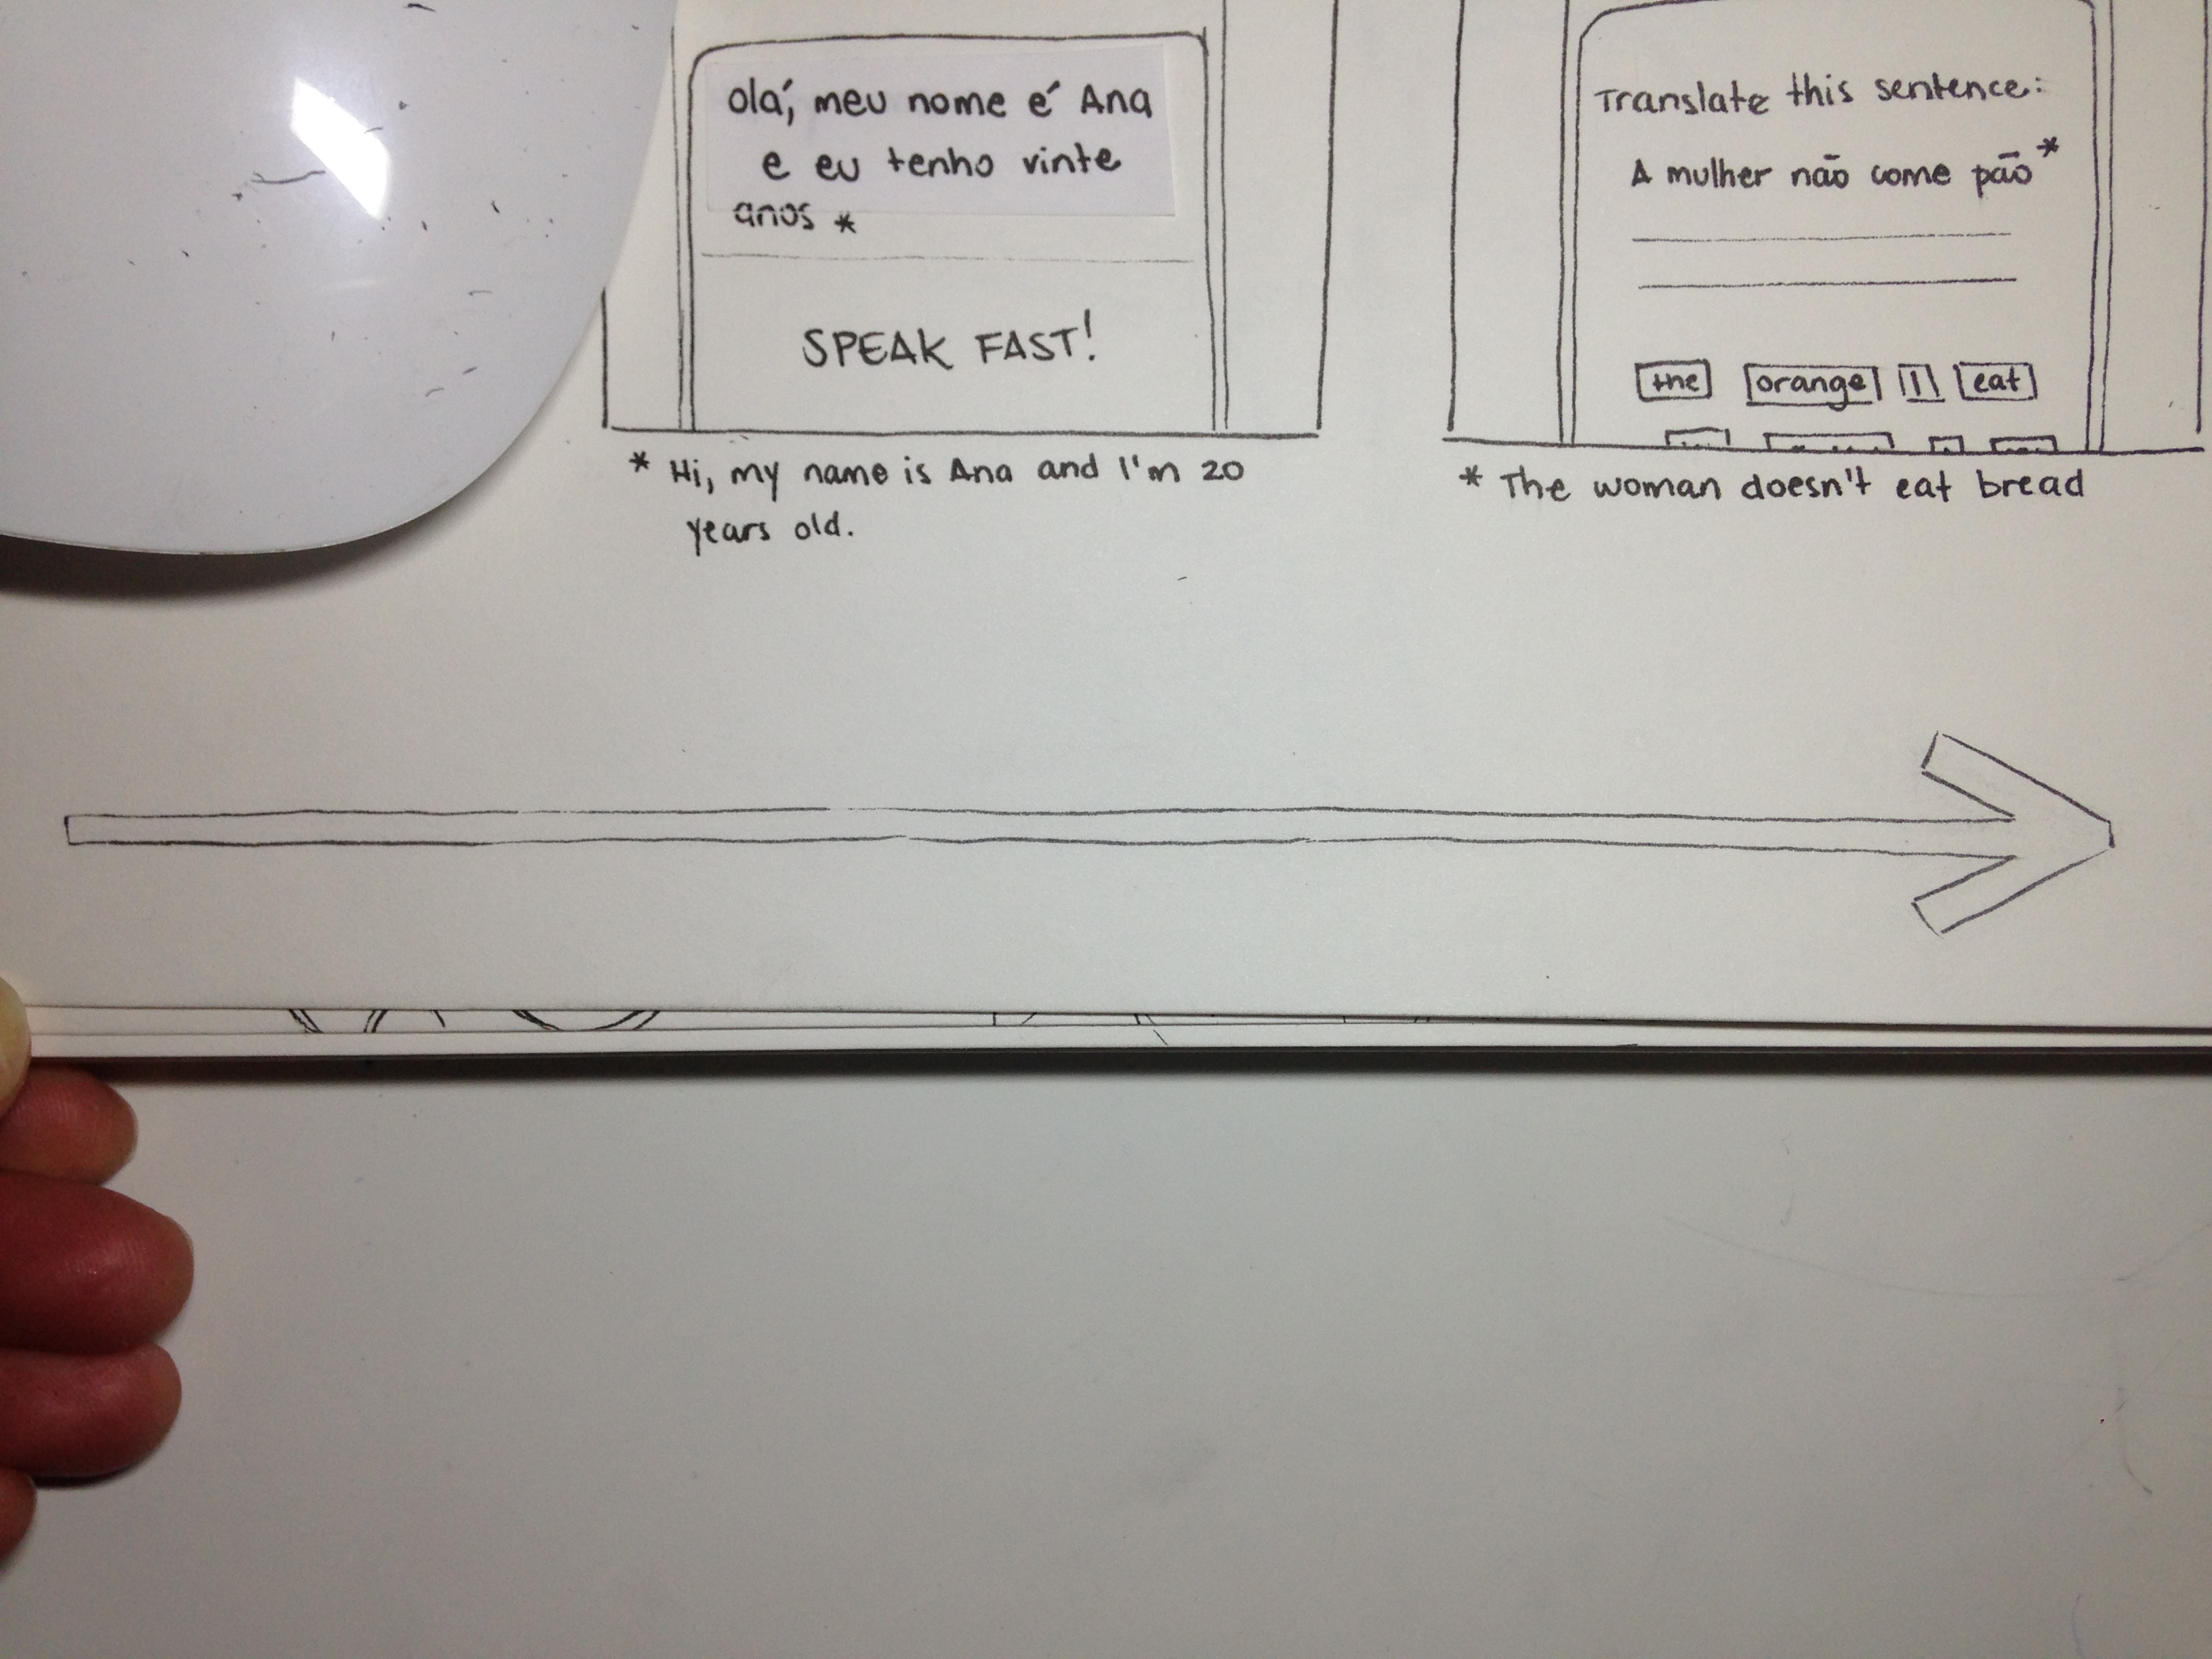 olá, meu nome é Ana
e eu tenho vinte
anos *
SPEAK FAST!
* Hi, my name is Ana and I'm 20
years old.
Translate this sentence:
A mulher não come pão *
the orange I eat
* The woman doesn't eat bread